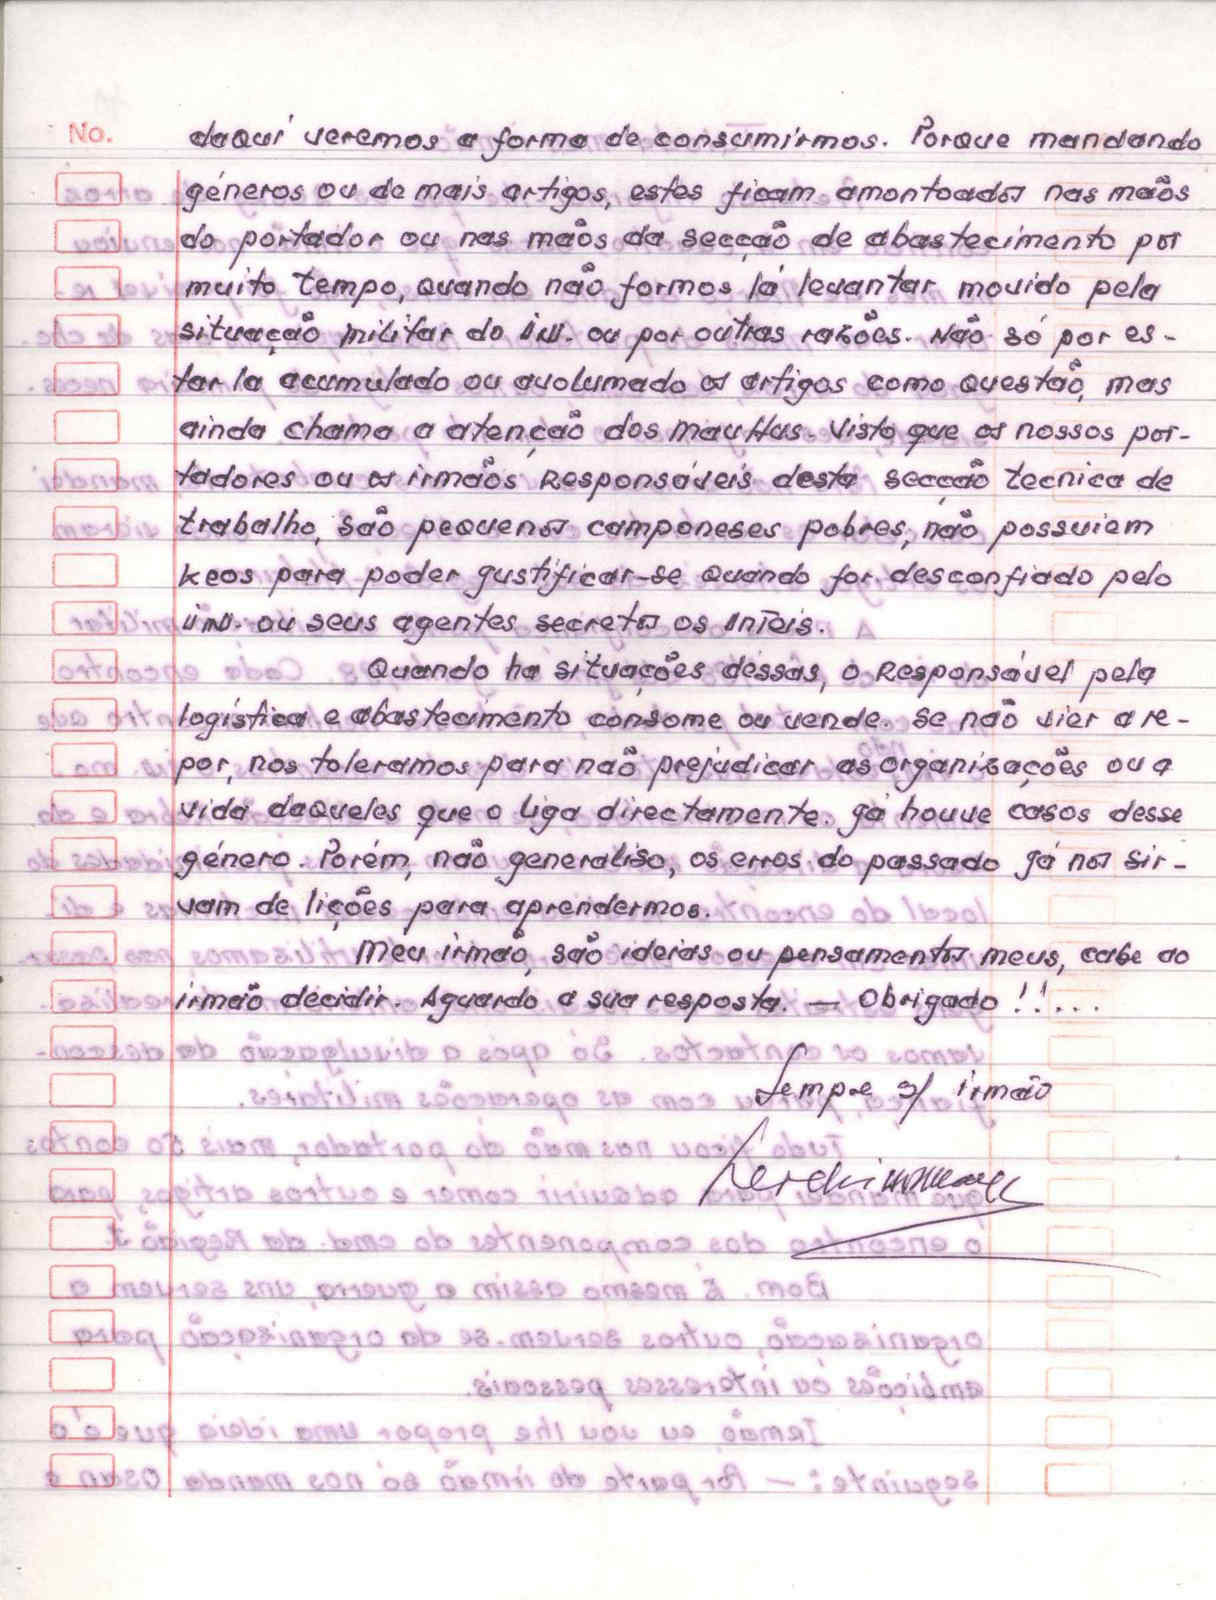 No.
daqui veremos a forma de consumirmos. Porque mandando
géneros ou de mais artigos, estes ficam amontoados nas maõs
do portador ou nas maõs da secção de abastecimento por
muito tempo, quando não formos lá levantar movido pela
situação militar do INI. ou por outras razões. Não só por es-
tar la acumulado ou avolumado os artigos como questaõ, mas
ainda chama a atenção dos MauHus. Visto que os nossos por-
tadores ou os irmaõs Responsáveis desta secção tecnica de
trabalho, são pequenos camponeses pobres, não possuiem
keos para poder gustificar-se quando for desconfiado pelo
INI. ou seus agentes secretos os Inteis.
Quando ha situações dessas, o Responsável pela
logística e abastecimento consome ou vende. Se não vier a re-
por, nos toleramos para não prejudicar as organizações ou a
vida daqueles que o liga directamente. Já houve casos desse
género. Porém, não generaliso, os erros do passado já nos sir-
vam de lições para aprendermos.
Meu irmaõ, são ideias ou pensamentos meus, cabe ao
irmaõ decidir. Aguardo a sua resposta. — Obrigado !!...
Sempre s/ irmão